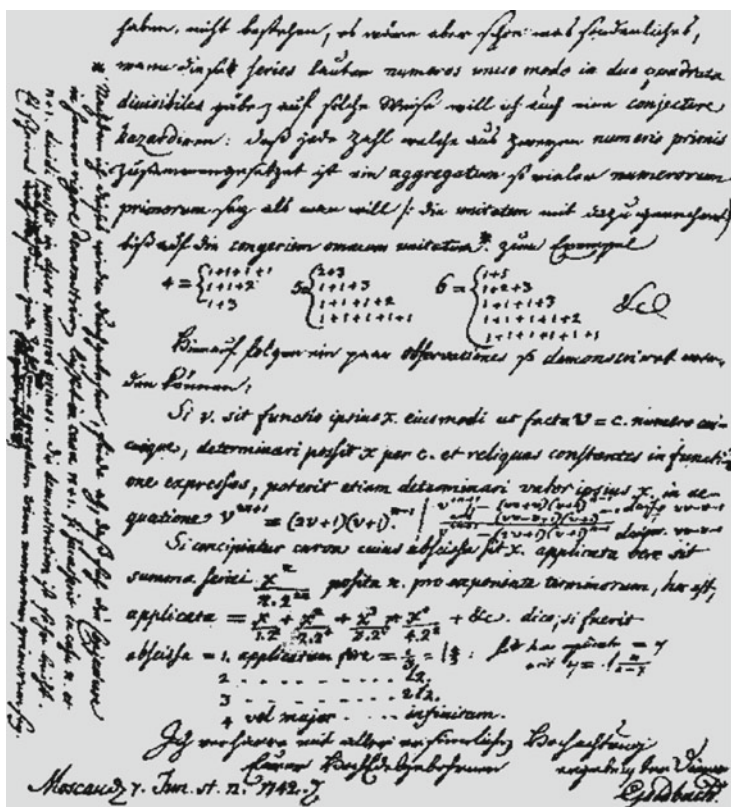 haben, nicht bestehen, es wäre aber schon was sonderliches,
wann eine series lauter numeros unico modo in duo quadrata
divisibiles gäbe auf solche Weise will ich auch eine conjecture
hazardiren: daß jede Zahl welche aus zweyen numeris primis
zusammengesetzet ist ein aggregatum so vieler numerorum
primorum sey als man will /: die unitatem mit dazu gerechnet
biß auf die congeriem omnium unitatum * zum Exempel
4 = { 1+1+1+1
1+1+2
1+3
5 = { 2+3
1+1+3
1+1+1+2
1+1+1+1+1
6 = { 1+5
1+2+3
1+1+1+3
1+1+1+1+2
1+1+1+1+1+1
&c
Hierauf folgen ein paar observationes so demonstriret wer-
den können:
Si v. sit functio ipsius x. eiusmodi ut facta v = c. numero cui-
cunque, determinari possit x per c. et reliquas constantes in functi-
one expressas, poterit etiam determinari valor ipsius x. in ae-
quatione v^{2n+1} = (2v+1)(v+1)^{n-1}
Si concipiatur curva cuius abscissa sit x. applicata vero sit
summa seriei x^n / n.2^{2n} posita n. pro exponente terminorum, hoc est,
applicata = x/1.2^2 + x^2/2.2^4 + x^3/3.2^6 + x^4/4.2^8 + &c. dico, si fuerit
abscissa = 1. applicatam fore = l 4/3
2 . . . . . . . . l2.
3 . . . . . . . . 2l2.
4 vel major . . . . infinitam.
Ich verharre mit aller ersinnlichen Hochachtung
Eurer Hochedelgebohrnen ergebenster Diener
Moscau d. 7. Jun. st. n. 1742. Goldbach.
* Nachdem ich dieses wieder durchgelesen, finde ich, daß sich die Conjecture
in summo rigore demonstriren lässet in casu n+1. si successerit in casu n. et
n+1. dividi possit in duos numeros primos. Die demonstration ist sehr leicht.
Es scheinet wenigstens, daß eine jede Zahl ein aggregatum trium numerorum primorum sey.